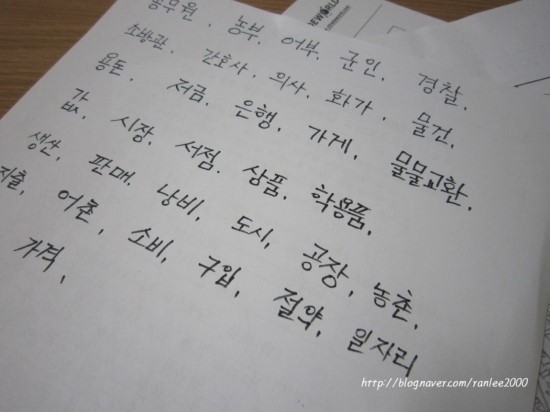 NEWORLD
공무원, 농부, 어부, 군인, 경찰,
소방관, 간호사, 의사, 화가, 물건,
용돈, 저금, 은행, 가게, 물물교환,
값, 시장, 서점, 상품, 학용품,
생산, 판매, 낭비, 도시, 공장, 농촌,
지출, 어촌, 소비, 구입, 절약, 일자리
가격,
http://blog.naver.com/ranlee2000